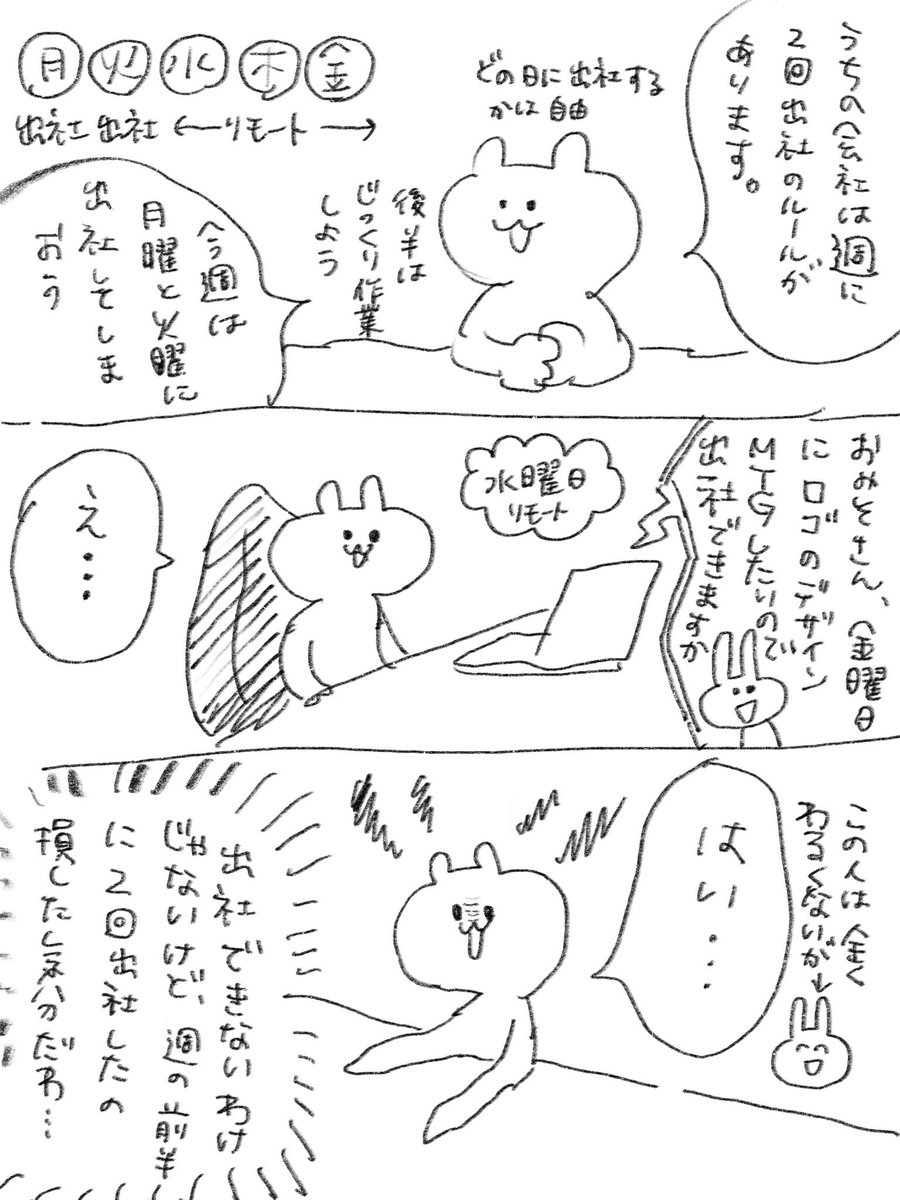 うちの会社は週に
2回出社のルールが
あります。
どの日に出社する
かは自由
月火水木金
出社 出社 ←リモート→
後半は
じっくり作業
しよう
今週は
月曜と火曜に
出社してしま
おう
おみそさん、金曜日
にロゴのデザイン
MTGしたいので
出社できますか
水曜日
リモート
え…
この人は全く
わるくないが↓
はい…
出社できないわけ
じゃないけど、週の前半
に2回出社したの
損した気分だわ…